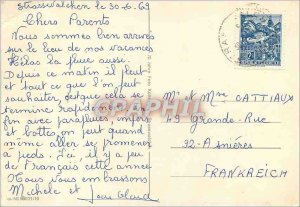 Strasswalchen le 30-6-69
Chers Parents
Nous sommes bien arrivés
sur le lieu de nos vacances
Hélas la pluie aussi.
Depuis ce matin il pleut
et tout ce que l'on peut
souhaiter, c'est que cela se
termine rapidement. Car
enfin avec parapluies, imper
et bottes on peut quand
même aller se promener
à pieds. Ici, il y a peu
de Français cette année.
Nous vous embrassons
Michèle et Jean Claud
Mr et Mme CATTIAUX
49 Grande-Rue
92-Asnières
FRANKREICH